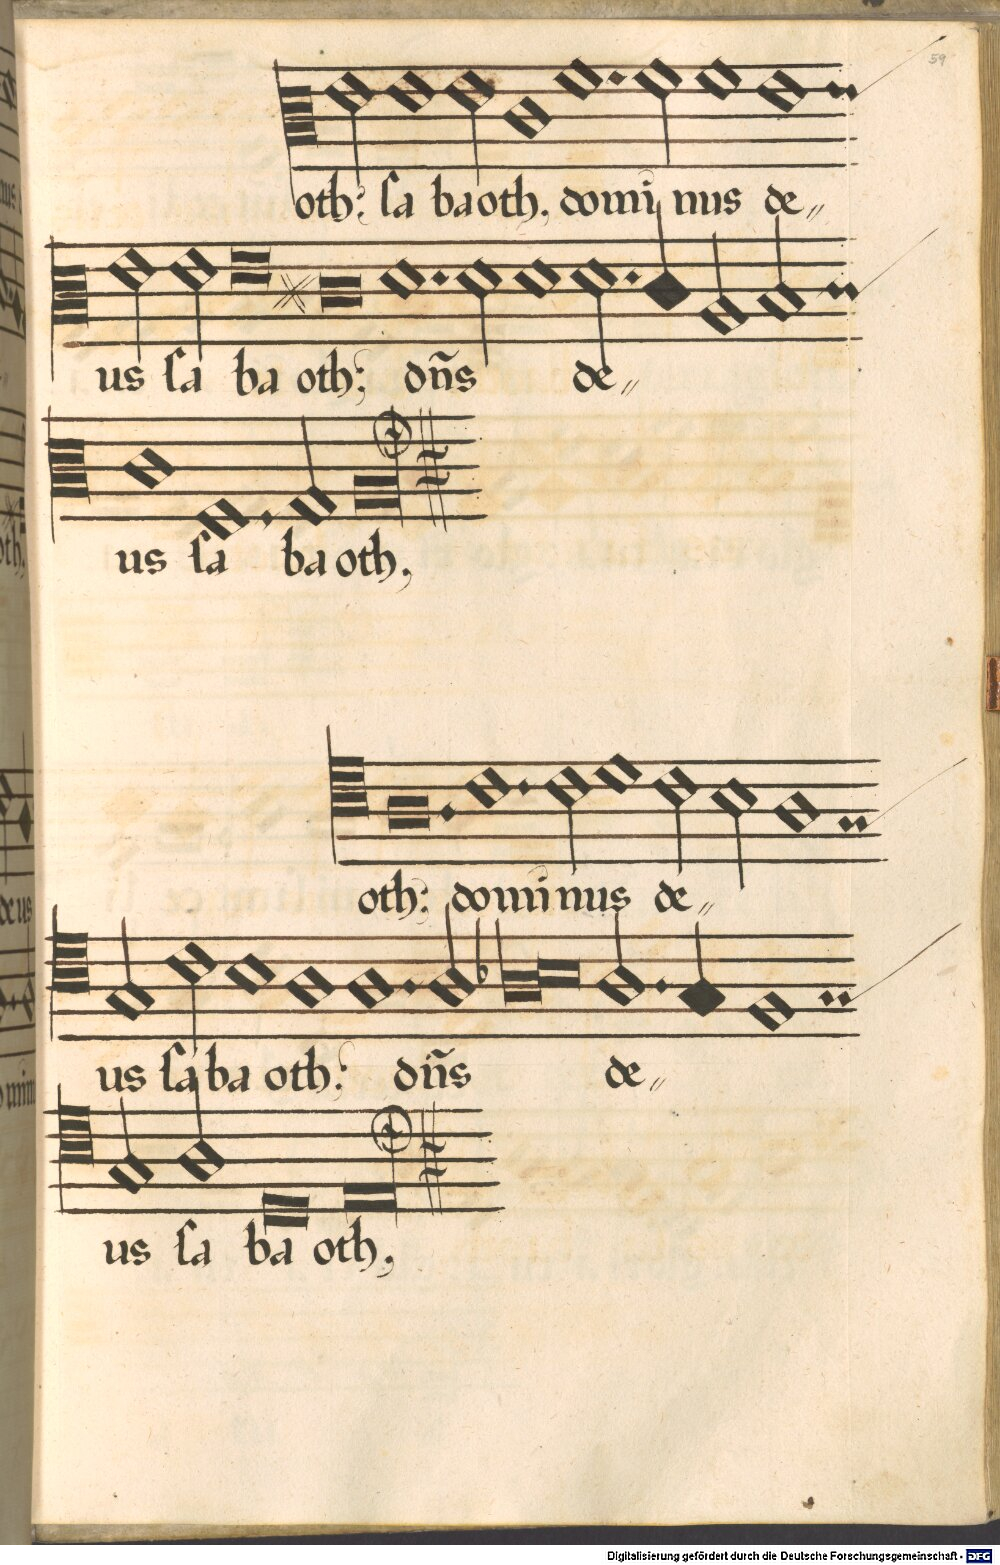 59
oth: sa baoth, dominus de„
us sa ba oth; dñs de„
us sa ba oth,
oth: dominus de„
us sa ba oth: dñs de„
us sa ba oth,
Digitalisierung gefördert durch die Deutsche Forschungsgemeinschaft - DFG